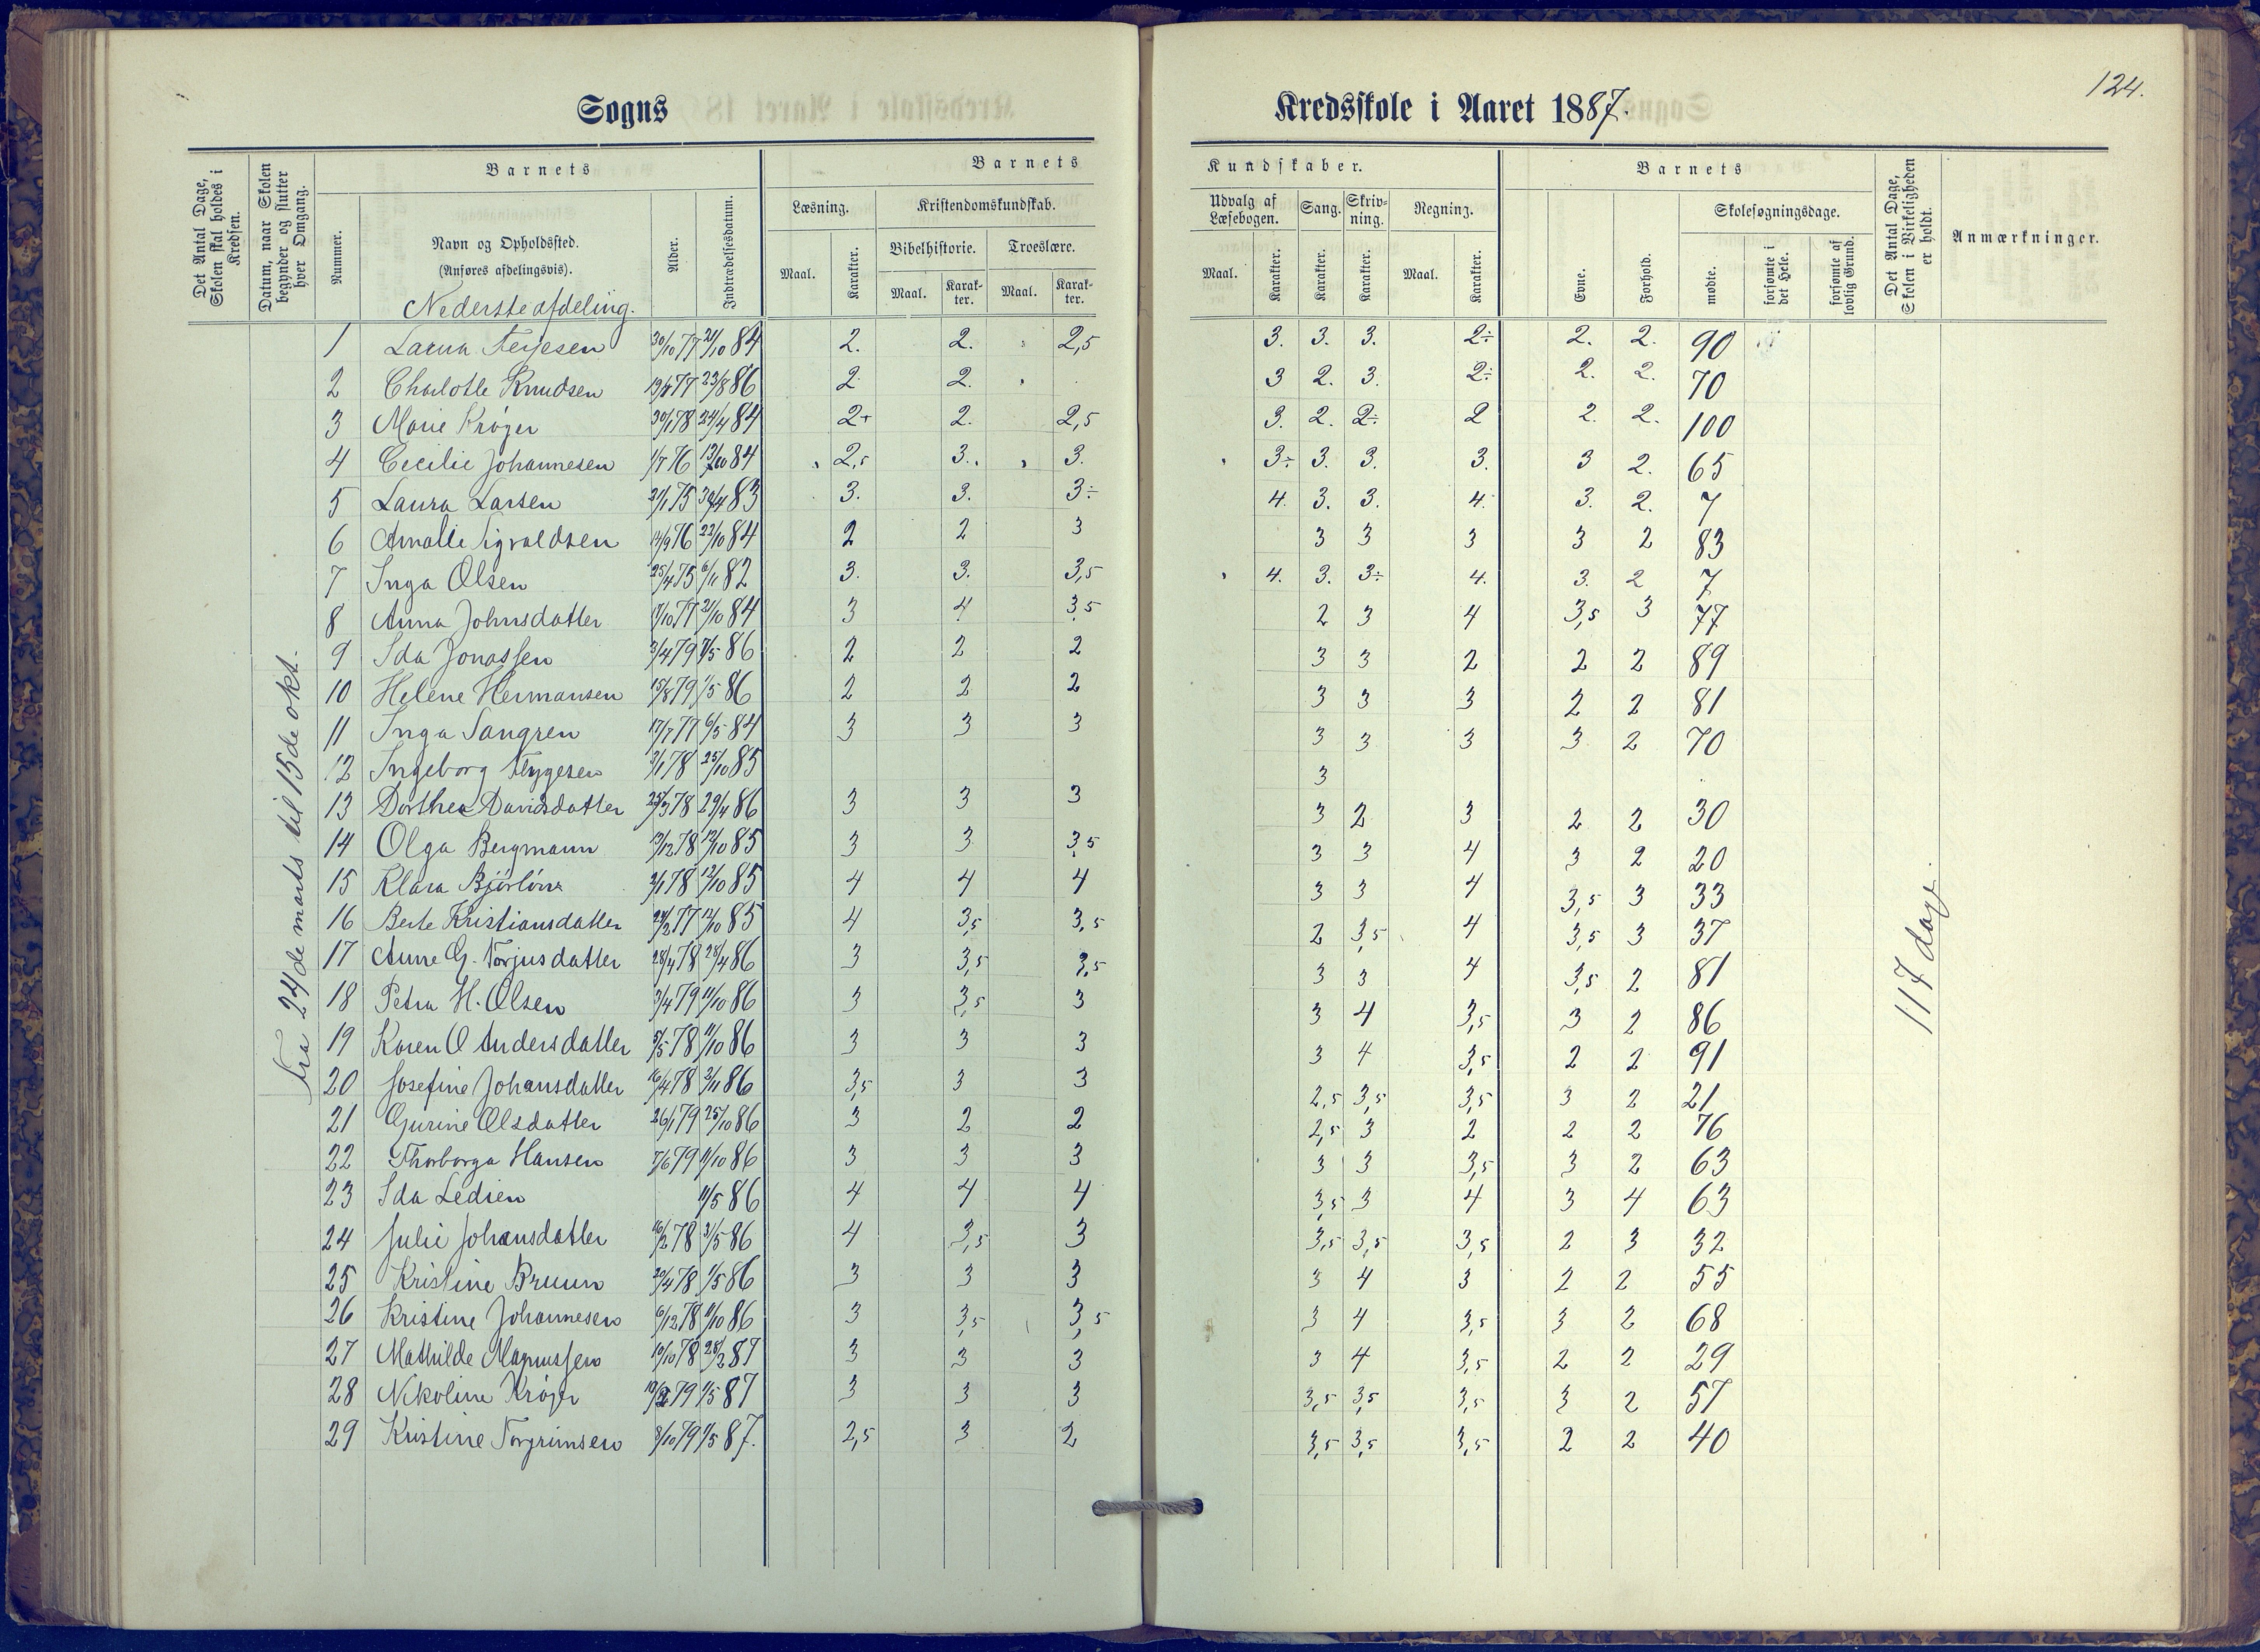 124.
Sogns Kredsskole i Aaret 1887.
Det Antal Dage, Skolen skal holdes i Kredsen.
Datum, naar Skolen begynder og slutter hver Omgang.
Barnets
Nummer.
Navn og Opholdssted.
(Anføres afdelingsvis).
Nederste afdeling.
Alder.
Indtrædelsesdatum.
Barnets Kundskaber.
Læsning.
Maal. Karakter.
Kristendomskundskab.
Bibelhistorie. Troeslære.
Maal. Karakter. Maal. Karakter.
Udvalg af Læsebogen.
Maal. Karakter.
Sang. Karakter.
Skrivning. Karakter.
Regning.
Maal. Karakter.
Barnets
Evne. Forhold.
Skolesøgningsdage.
mødte. forsømte i det Hele. forsømte af lovlig Grund.
Det Antal Dage, Skolen i Virkeligheden er holdt.
Anmærkninger.
Fra 24de marts til 15de okt.
1 Laura Terjesen 30/10 77 21/10 84 2. 2. 2,5 3. 3. 3. 2÷ 2. 2. 90
2 Charlotte Knudsen 77 23/8 86 2. 2. 3 2. 3. 2÷ 2. 2. 70
3 Marie Krøger 30/1 78 24/4 84 2+ 2. 2,5 3. 2. 2÷ 2 2. 2. 100
4 Cecilie Johannesen 1/7 76 84 2,5 3. 3. 3÷ 3. 3. 3. 3 2. 65
5 Laura Larsen 75 30/4 83 3. 3. 3÷ 4. 3. 3. 4. 3. 2. 7
6 Amalie Sigvaldsen 14/9 76 22/10 84 2 2 3 3 3 3 3 2 83
7 Inga Olsen 25/4 75 6/11 82 3. 3. 3,5 4. 3. 3÷ 4. 3. 2 7
8 Anna Johnsdatter 77 21/10 84 3 4 3,5 2 3 4 3,5 3 77
9 Ida Jonassen 3/4 79 86 2 2 2 3 3 2 2 2 89
10 Helene Hermansen 15/8 79 1/5 86 2 2 2 3 3 3 2 2 81
11 Inga Sangren 17/7 77 6/5 84 3 3 3 3 3 3 3 2 70
12 Ingeborg Tygesen 78 25/10 85 3
13 Dorthea Davidsdatter 25/3 78 29/4 86 3 3 3 3 2 3 2 2 30
14 Olga Bergmann 78 12/10 85 3 3 3,5 3 3 4 3 2 20
15 Klara 78 12/10 85 4 4 4 3 3 4 3,5 3 33
16 Berte Kristiansdatter 77 12/10 85 4 3,5 3,5 2 3,5 4 3,5 3 37
17 Anne G. Torjusdatter 28/4 78 28/4 86 3 3,5 3,5 3 3 4 3,5 2 81
18 Petra H. Olsen 3/4 79 11/10 86 3 3,5 3 3 4 3,5 3 2 86
19 Karen O Andersdatter 5/5 78 11/10 86 3 3 3 3 4 3,5 2 2 91
20 Josefine Johansdatter 16/4 78 2/11 86 3,5 3 3 2,5 3,5 3,5 3 2 21
21 Gurine Olsdatter 26/1 79 25/10 86 3 2 2 2,5 3 2 2 2 76
22 Thorborga Hansen 7/6 79 11/10 86 3 3 3 3 3 3,5 3 2 63
23 Ida Ledsen 11/5 86 4 4 4 3,5 3 4 3 4 63
24 Julie Johansdatter 16/2 78 31/5 86 4 3,5 3 3,5 3,5 3,5 2 3 32
25 Kristine Bruun 20/4 78 1/5 86 3 3 3 3 4 3 2 2 55
26 Kristine Johannesen 6/12 78 11/10 86 3 3,5 3,5 3 4 3,5 3 2 68
27 Mathilde Magnussen 10/10 78 28/2 87 3 3 3 3 4 3,5 2 2 29
28 Nikoline Krøger 79 1/5 87 3 3 3 3,5 3,5 3,5 3 2 57
29 Kristine Torgrimsen 8/10 79 1/5 87. 2,5 3 2 3,5 3,5 3,5 2 2 40
117 dage